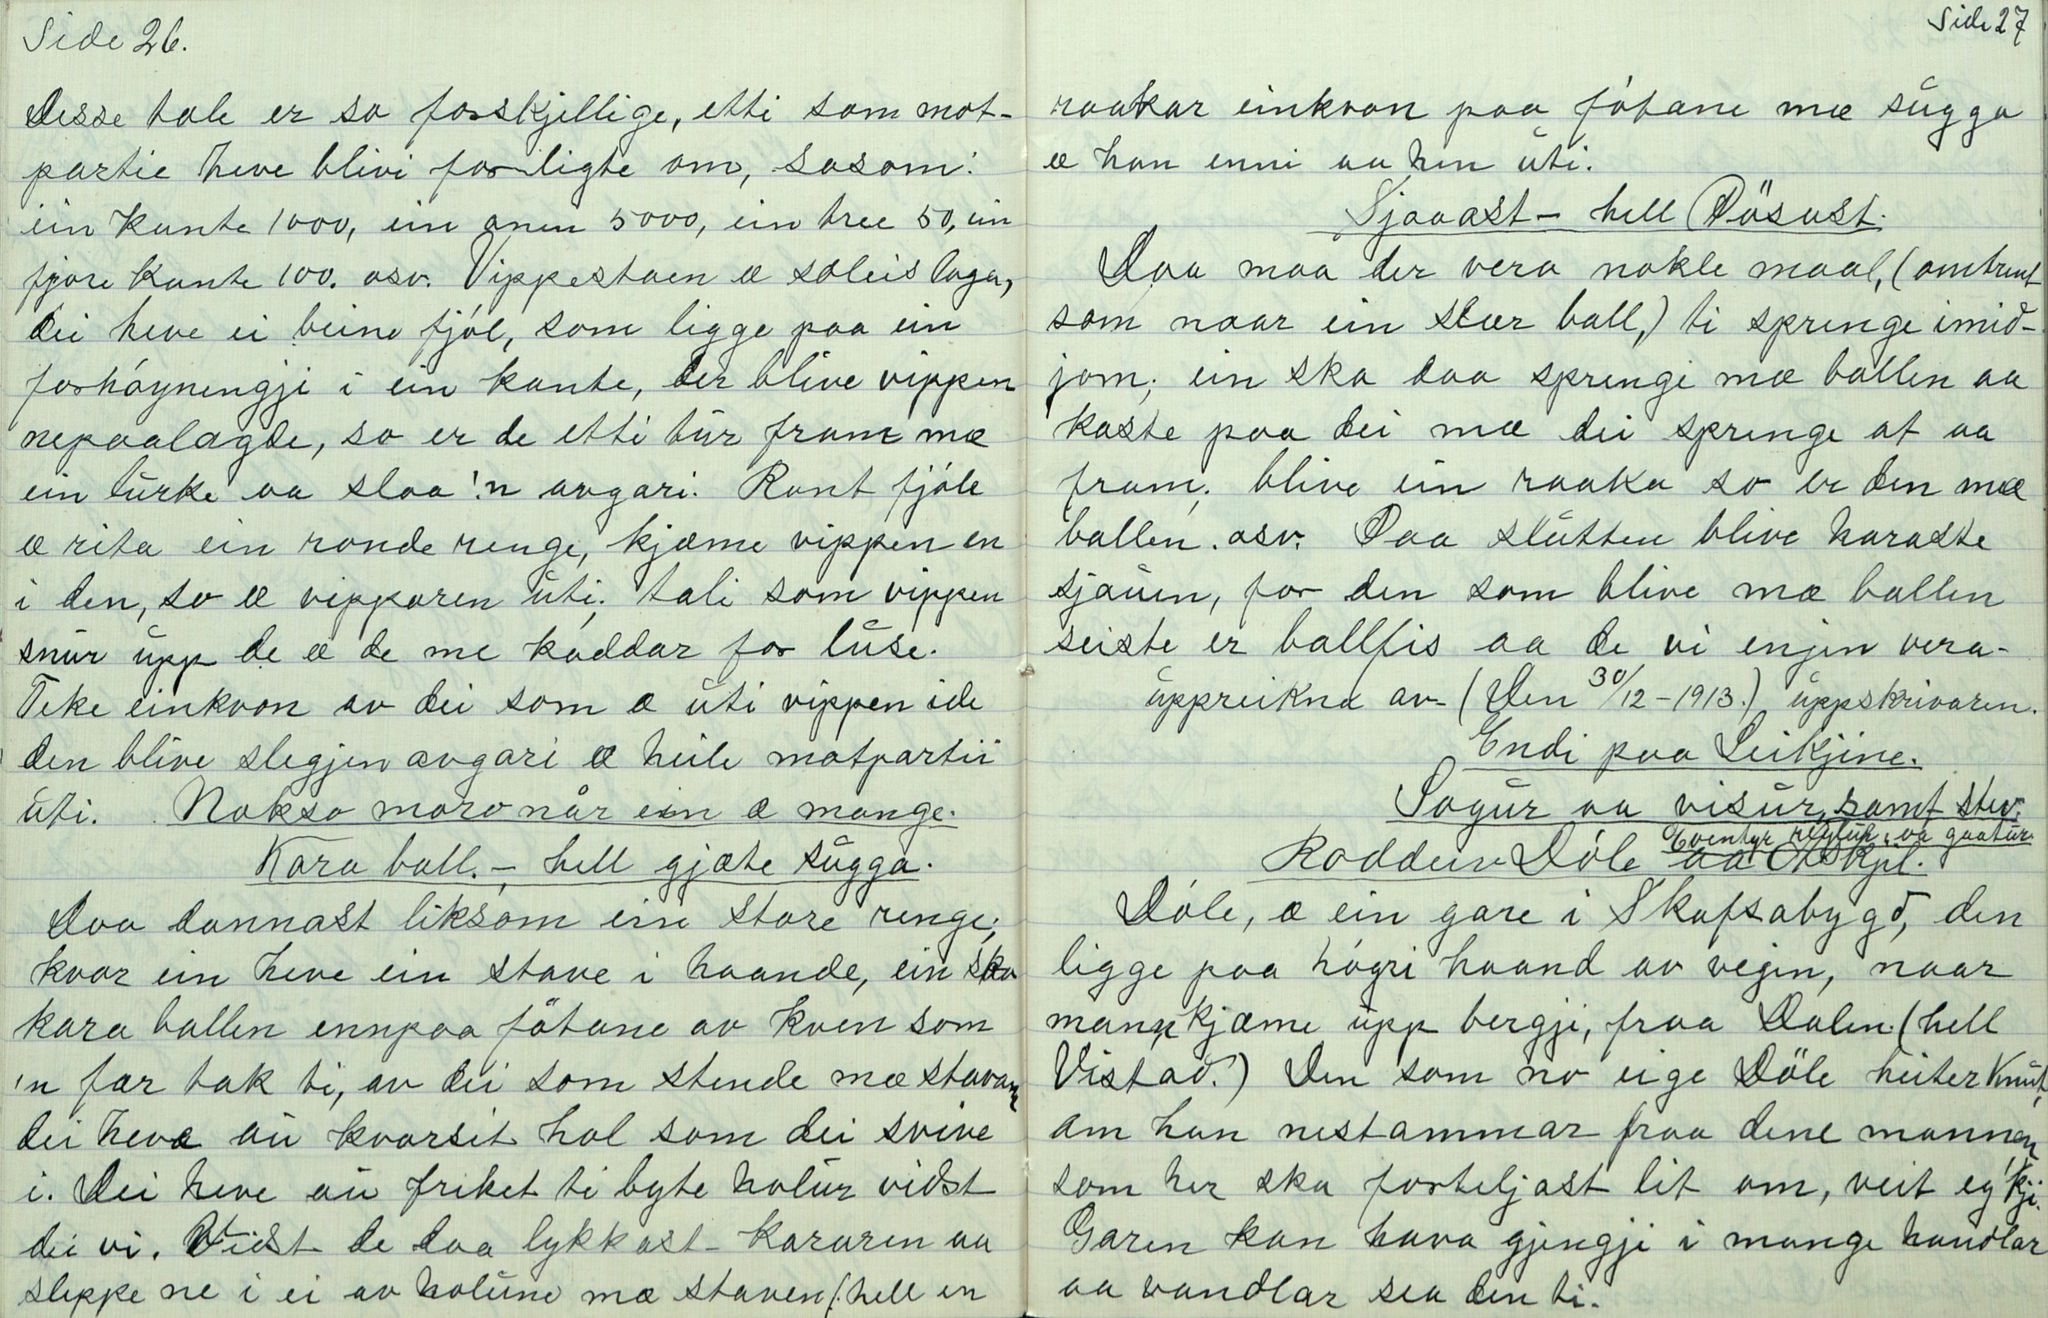 Side 26.
Desse tale er so forskjellige, etti som mot-
partie heve blivi forligte om, sosom:
ein kante 1000, ein anen 5000, ein tree 50, ein
fjore kante 100. osv. Vippestaen æ soleis laga,
dei heve ei beine fjól, som ligge paa ein
forhóyningji i ein kante, der blive vippen
nepaalagde, so er de etti tùr fram mæ
ein lùrke aa slaa 'n avgari. Runt fjóle
æ rita ein ronde renge, kjæme vippen en
i den, so æ vipparen ùti. tali som vippen
snùr ùpp de æ de me kaddar for lùse.
Teke einkvon av dei som æ ùti vippen ide
den blive slegjen avgari æ heile motpartii
ùti. Nokso moro når ein æ mange.
Kara ball. – hell gjæte sùgga.
Daa dannast liksom ein store renge,
kvar ein heve ein stave i haande, ein ska
kara ballen ennpaa fótane av kven som
'n fær tak ti, av dei som stende mæ stavann
dei heve aù kvarsit hol som dei svive
i. Dei heve aù friket ti byte holùr vidst
dei vi. Vidst de daa lykkast kararen aa
sleppe ne i ei av holùne mæ staven (hell en
Side 27
raakar einkvon paa fótane mæ sùgga
æ han enni aa hen ùti.
Sjaaast – hell Dösast.
Daa maa der vera nokle maal, (omtrent
som naar ein slær ball,) ti springe imid-
jom; ein ska daa springe mæ ballen aa
kaste paa dei mæ dei springe at aa
fram, blive ein raaka so er den mæ
ballen. osv. Paa slùtten blive haraste
sjaùen, for den som blive mæ ballen
seiste er ballfis aa de vi enjen vera-
ùppreikna av (Den 30/12 – 1913.) ùppskrivaren.
Endi paa Leikjine.
Sogùr aa visùr, samt stev.
Eventyr, reglùr, aa gaatùr.
Rodden Dóle aa Otskjil.
Dóle, æ ein gare i Skafsabygð, den
ligge paa hógri haand av vegin, naar
mann kjæme ùpp bergji, fraa Dalen (hell
Vistad.) Den som no eige Döle heiter Knùt,
om han nestammar fraa dene mannen
som her ska forteljast lit om, veit eg 'kji.
Garen kan hava gjengji i mange handlar
aa vandlar sea den ti.